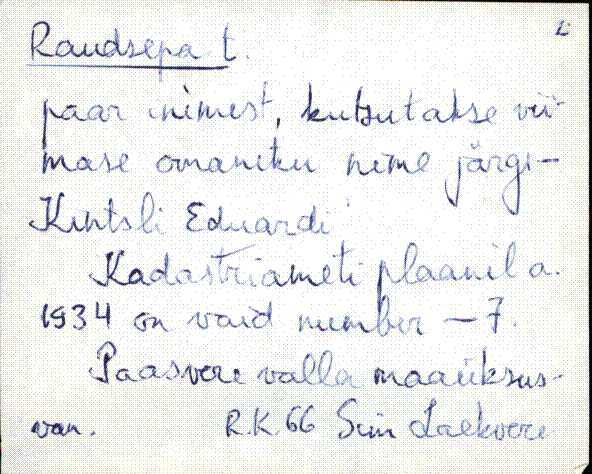 2
Raudsepa t.
paar inimest, kutsutakse vii-
mase omaniku nime järgi -
Kintsli Eduardi
Kadastriameti plaanil a.
1934 on vaid number - 7.
Paasvere valla maaüksus-
van. R.K. 66 Sim Laekvere